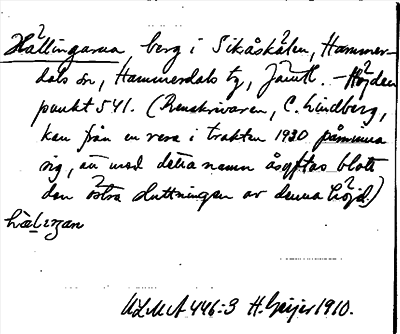 Hållingarna berg i Sikåskälen, Hammer-
dals sn, Hammerdals tg, Jämtl. – Höjden
punkt 541. (Renskrivaren, C. Lindberg,
kan från en resa i trakten 1930 påminna
sig, att med detta namn åsyftas blott
den östra sluttningen av denna höjd.)
ULMA 446:3 H. Geijer 1910.